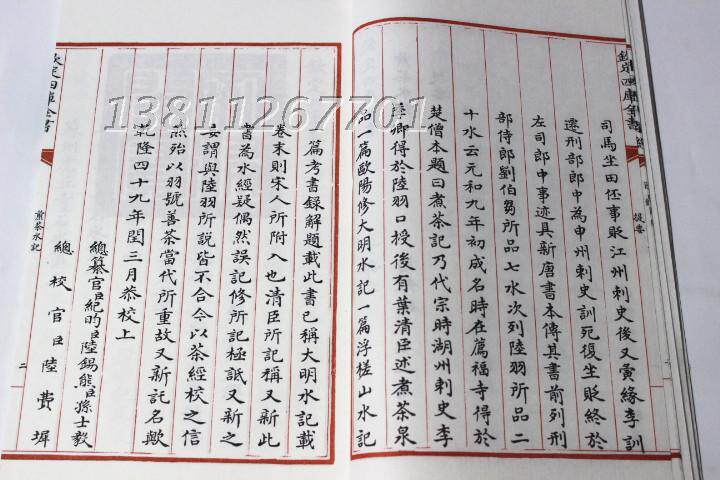 欽定四庫全書
提要
司馬坐田伾事貶江州刺史後又夤緣李訓
遷刑部郎中為申州刺史訓死復坐貶終於
左司郎中事迹具新唐書本傳其書前列刑
部侍郎劉伯芻所品七水次列陸羽所品二
十水云元和九年初成名時在薦福寺得於
楚僧本題曰煮茶記乃代宗時湖州刺史李
季卿得於陸羽口授後有葉清臣述煮茶泉
品一篇歐陽修大明水記一篇浮槎山水記
一篇考書録解題載此書已稱大明水記載
卷末則宋人所附入也清臣所記稱又新此
書為水經疑偶然誤記修所記極詆又新之
妄謂與陸羽所說皆不合今以茶經校之信
然殆以羽號善茶當代所重故又新託名歟
乾隆四十九年閏三月恭校上
總纂官臣紀昀臣陸錫熊臣孫士毅
總校官臣陸費墀
欽定四庫全書
煎茶水記
二
13811267701